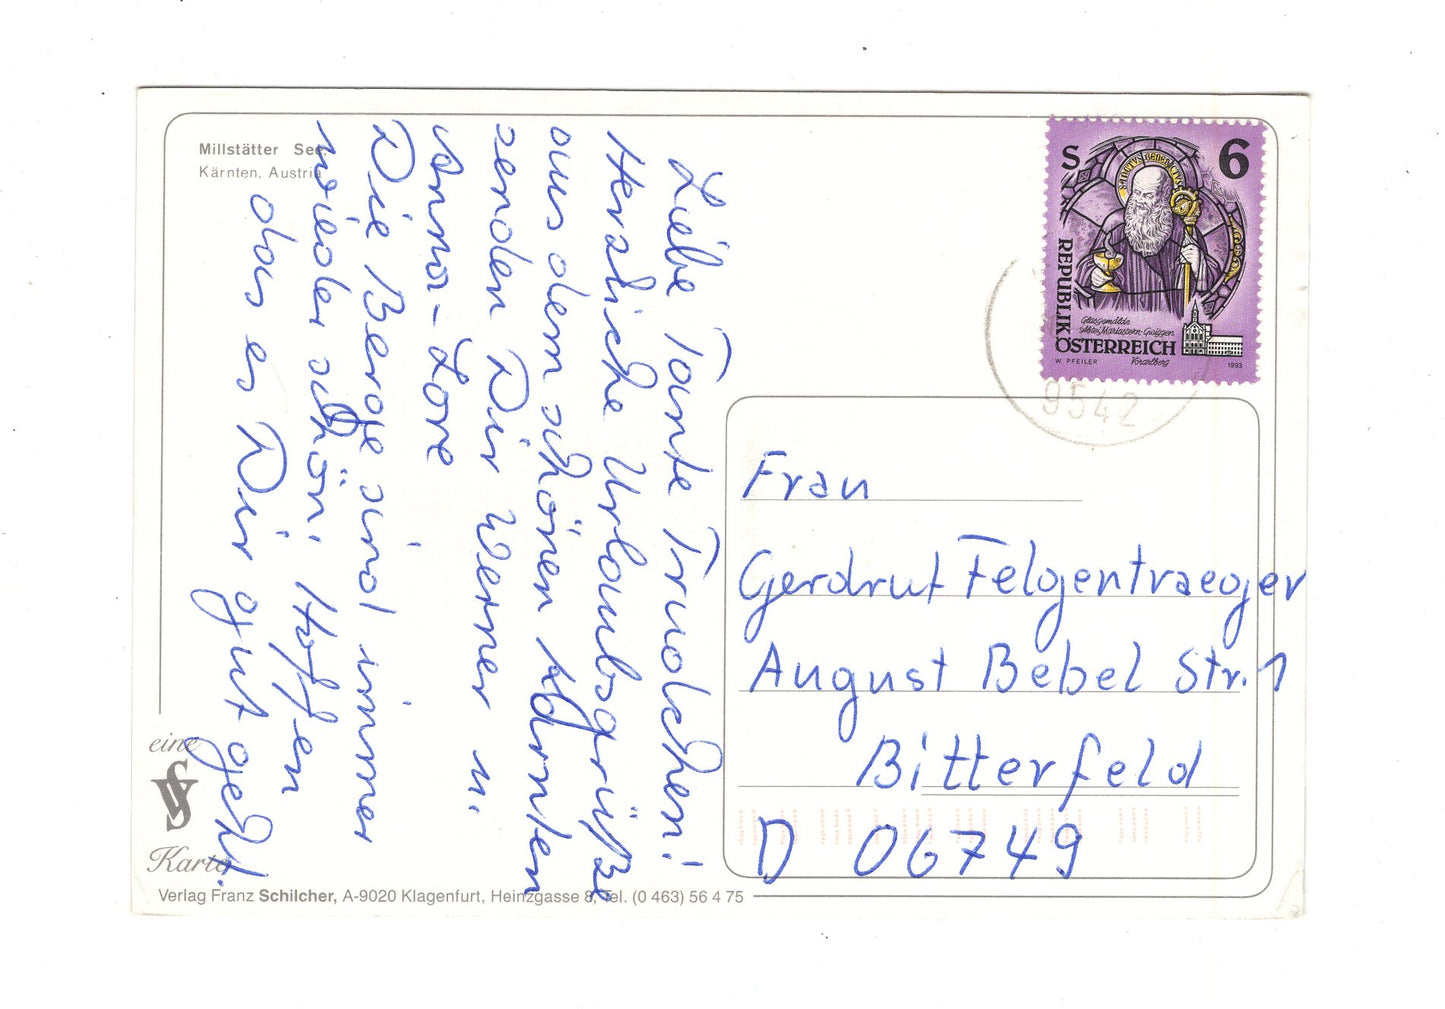 Millstätter See
Kärnten, Austria
Liebe Tante Trudchen!
Herzliche Urlaubsgrüße
aus dem schönen Kärnten
senden Dir Werner u.
Anna-Lore
Die Berge sind immer
wieder schön! Hoffen
das es Dir gut geht.
S 6
SANCTUS BENEDICTUS
REPUBLIK
ÖSTERREICH
Glasgemälde
Abtei Mariastern-Gwiggen
Vorarlberg
W. PFEILER
1993
9542
Frau
Gerdrut Felgentraeger
August Bebel Str. 1
Bitterfeld
D 06749
eine
VS
Karte
Verlag Franz Schilcher, A-9020 Klagenfurt, Heinzgasse 8, Tel. (0 463) 56 4 75